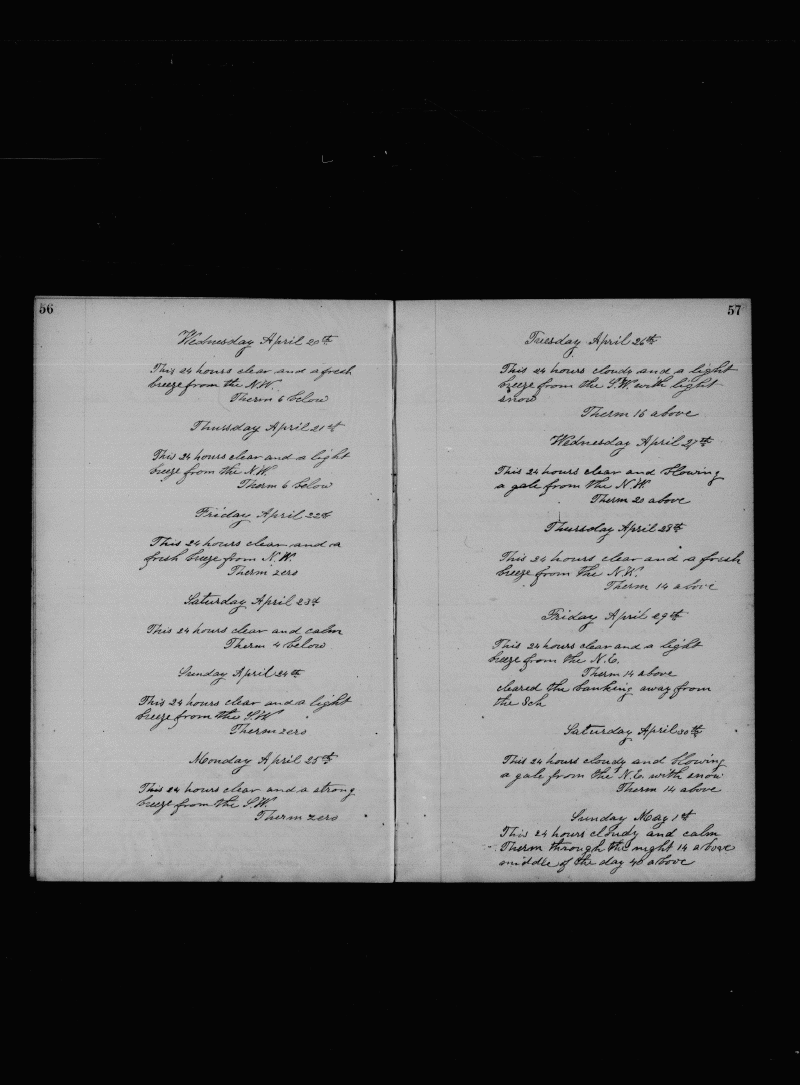 56
Wednesday April 20th
This 24 hours clear and a fresh
breeze from the N.W.
Therm 6 below
Thursday April 21st
This 24 hours clear and a light
breeze from the N.W.
Therm 6 below
Friday April 22d
This 24 hours clear and a
fresh breeze from N.W.
Therm zero
Saturday April 23d
This 24 hours clear and calm
Therm 4 below
Sunday April 24th
This 24 hours clear and a light
breeze from the S.W.
Therm zero
Monday April 25th
This 24 hours clear and a strong
breeze from the S.W.
Therm zero
57
Tuesday April 26th
This 24 hours cloudy and a light
breeze from the S.W. with light
snow
Therm 16 above
Wednesday April 27th
This 24 hours clear and blowing
a gale from the N.W.
Therm 20 above
Thursday April 28th
This 24 hours clear and a fresh
breeze from the N.W.
Therm 14 above
Friday April 29th
This 24 hours clear and a light
breeze from the N.E.
Therm 14 above
cleared the banking away from
the Sch
Saturday April 30th
This 24 hours cloudy and blowing
a gale from the N.E. with snow
Therm 14 above
Sunday May 1st
This 24 hours cloudy and calm
Therm through the night 14 above
middle of the day 40 above